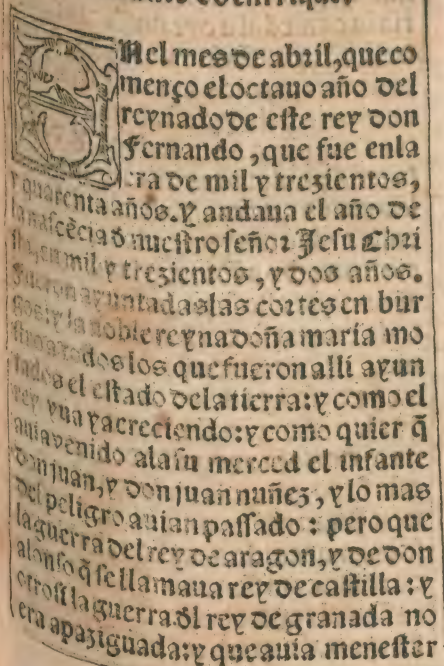 EN el mes de abril, que co
menço el octauo año del
reynado de este rey don
Fernando, que fue enla
era de mil y trezientos,
y quarenta años. Y andaua el año de
la nascẽcia d̃ nuestro señor Jesu Chri
sto, en mil y trezientos, y dos años.
Fueron ayuntadas las cortes en bur
gos: y la noble reyna doña maría mo
stro a todos los que fueron alli ayun
tados el estado dela tierra: y como el
rey yua ya creciendo: y como quier q̃
auia venido ala su merced el infante
don juan, y don juan nuñez, y lo mas
del peligro auian passado: pero que
la guerra del rey de aragon, y de don
alonso q̃ se llamaua rey de castilla: y
otrosi la guerra d̃l rey de granada no
era apaziguada: y que auia menester